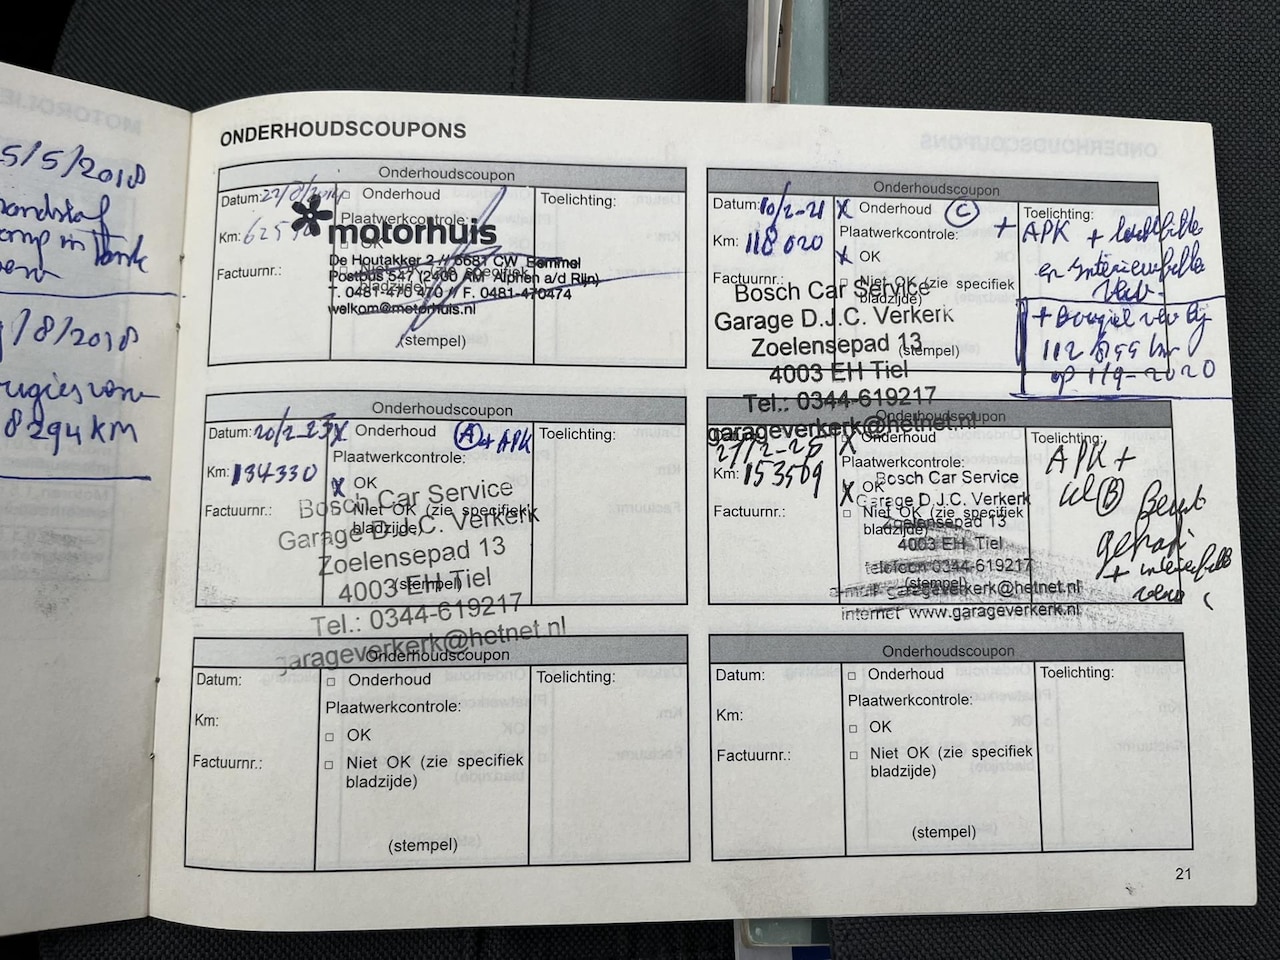 5/5/2018
/8/2018
8294 KM
ONDERHOUDSCOUPONS
Onderhoudscoupon
Datum:
Km:
Factuurnr.:
Onderhoud
Plaatwerkcontrole:
OK
Toelichting:
motorhuis
De Houtakker 2 // 6681 CW Bemmel
Postbus 547 (2400 AM Alphen a/d Rijn)
T. 0481-470 470 // F. 0481-470474
welkom@motorhuis.nl
(stempel)
Onderhoudscoupon
Datum: 10/2-21
Km: 118020
Factuurnr.:
X Onderhoud C
Plaatwerkcontrole:
X OK
Niet OK (zie specifiek
bladzijde)
(stempel)
Toelichting:
+ APK + luchtfilter
en interieurfilter
+ bougies verv bij
op 1/9-2020
Bosch Car Service
Garage D.J.C. Verkerk
Zoelensepad 13
4003 EH Tiel
Tel.: 0344-619217
garageverkerk@hetnet.nl
Onderhoudscoupon
Datum: 20/2-23
Km: 134330
Factuurnr.:
X Onderhoud A + APK
Plaatwerkcontrole:
X OK
Niet OK (zie specifiek
bladzijde)
(stempel)
Toelichting:
Bosch Car Service
Garage D.J.C. Verkerk
Zoelensepad 13
4003 EH Tiel
Tel.: 0344-619217
garageverkerk@hetnet.nl
Onderhoudscoupon
27/2-25
Km: 153509
Factuurnr.:
X Onderhoud
Plaatwerkcontrole:
X OK
Niet OK (zie specifiek
bladzijde)
(stempel)
Toelichting:
APK +
B Beurt
+ interieurfilter
Bosch Car Service
Garage D.J.C. Verkerk
Zoelensepad 13
4003 EH Tiel
telefoon 0344-619217
e-mail garageverkerk@hetnet.nl
internet www.garageverkerk.nl
Onderhoudscoupon
Datum:
Km:
Factuurnr.:
Onderhoud
Plaatwerkcontrole:
OK
Niet OK (zie specifiek
bladzijde)
(stempel)
Toelichting:
Onderhoudscoupon
Datum:
Km:
Factuurnr.:
Onderhoud
Plaatwerkcontrole:
OK
Niet OK (zie specifiek
bladzijde)
(stempel)
Toelichting:
21